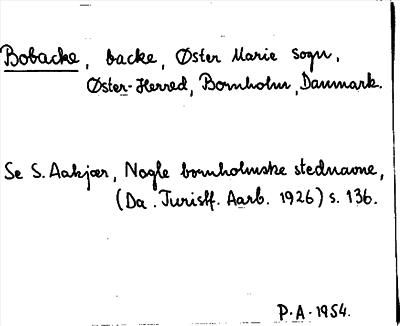 Bobacke, backe, Øster Marie sogn,
Øster-Herred, Bornholm, Danmark.
Se S. Aakjær, Nogle bornholmske stednavne,
(Da. Turistf. Aarb. 1926) s. 136.
P.A. 1954.